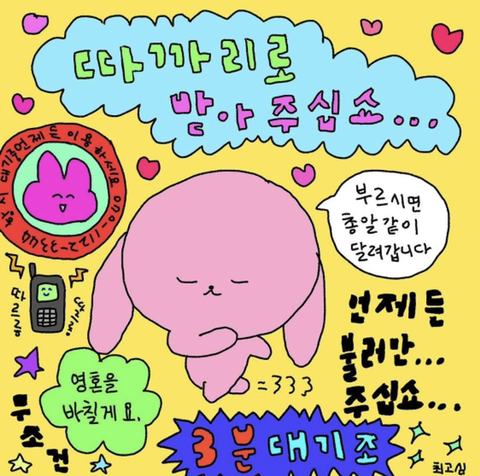 따까리로
받아 주십쇼...
항시 대기중 언제든 이용하세요 070-1122-3344
부르시면
총알같이
달려갑니다
따르릉
언제든
불러만...
주십쇼...
영혼을
바칠게요.
=333
무조건
3분 대기조
최고심